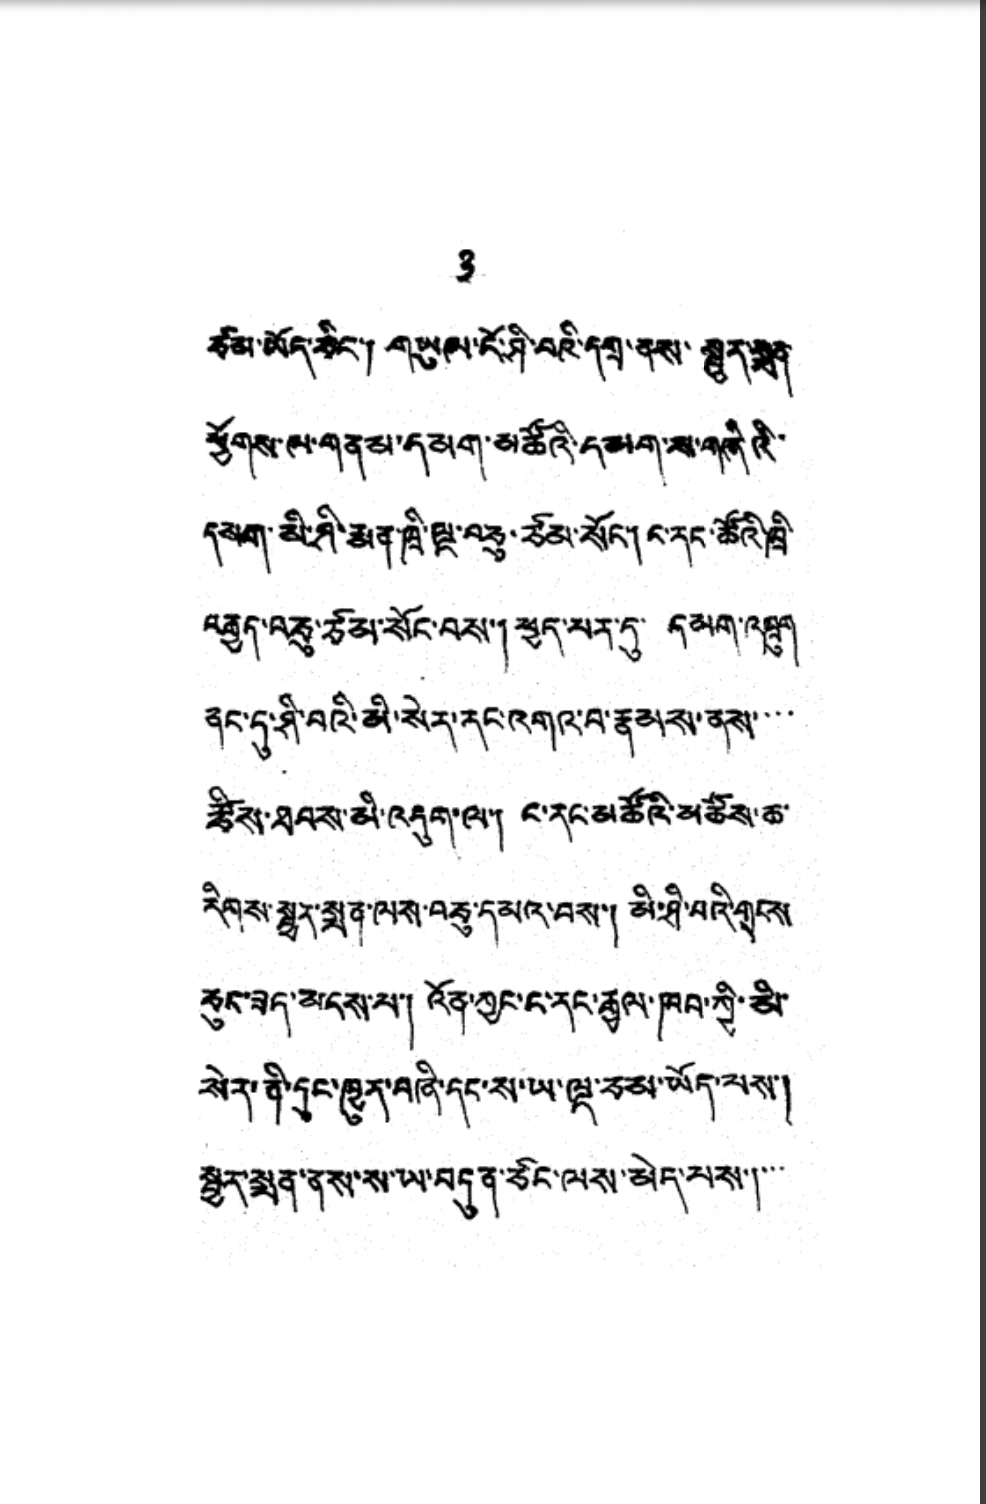 ༣
ཙམ་ཡོད་ཅིང་། གཡུལ་ངོ་ཤི་བའི་དགྲ་ནས་ སྦྱར་སྨན
ཕྱོགས་ལ་གནམ་དམག་མཚོའི་དམག་ས་གཞི་འི་
དམག་མི་ཤི་རྨན་ཁྲི་ལྔ་བཅུ་ཙམ་སོང་། ང་རང་ཚོའི་ཁྲི་
བརྒྱད་བཅུ་ཙམ་སོང་བས་། ཕྱད་པར་དུ་ དམག་འཁྲུག
ནང་དུ་ཤི་བའི་མི་སེར་རང་འགའ་བ་རྣམས་ནས་...
རྩིས་ཐབས་མི་འདུག་ལ་། ང་རང་མཚོའི་མཚོས་ཆ་
རིགས་སྦྱར་སྨན་ལས་བཅུ་དམའ་བས་། མི་ཤི་བའི་གྲངས
ཅུང་ཟད་མངས་པ་། འོན་ཀྱང་ང་རང་རྒྱལ་ཁབ་ཀྱི་མི་
སེར་ནི་དུང་ཕྱུར་བཞི་དང་ས་ཡ་ལྔ་ཙམ་ཡོད་པས་།
སྦྱར་སྨན་ནས་ས་ཡ་བདུན་ཙོང་ལས་མེད་པས་།...